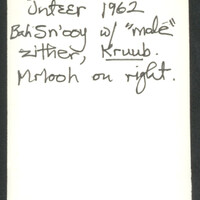 Jnteer 1962
Bah Sn'ooy w/ "male"
zither, Kruub.
Mrlooh on right.